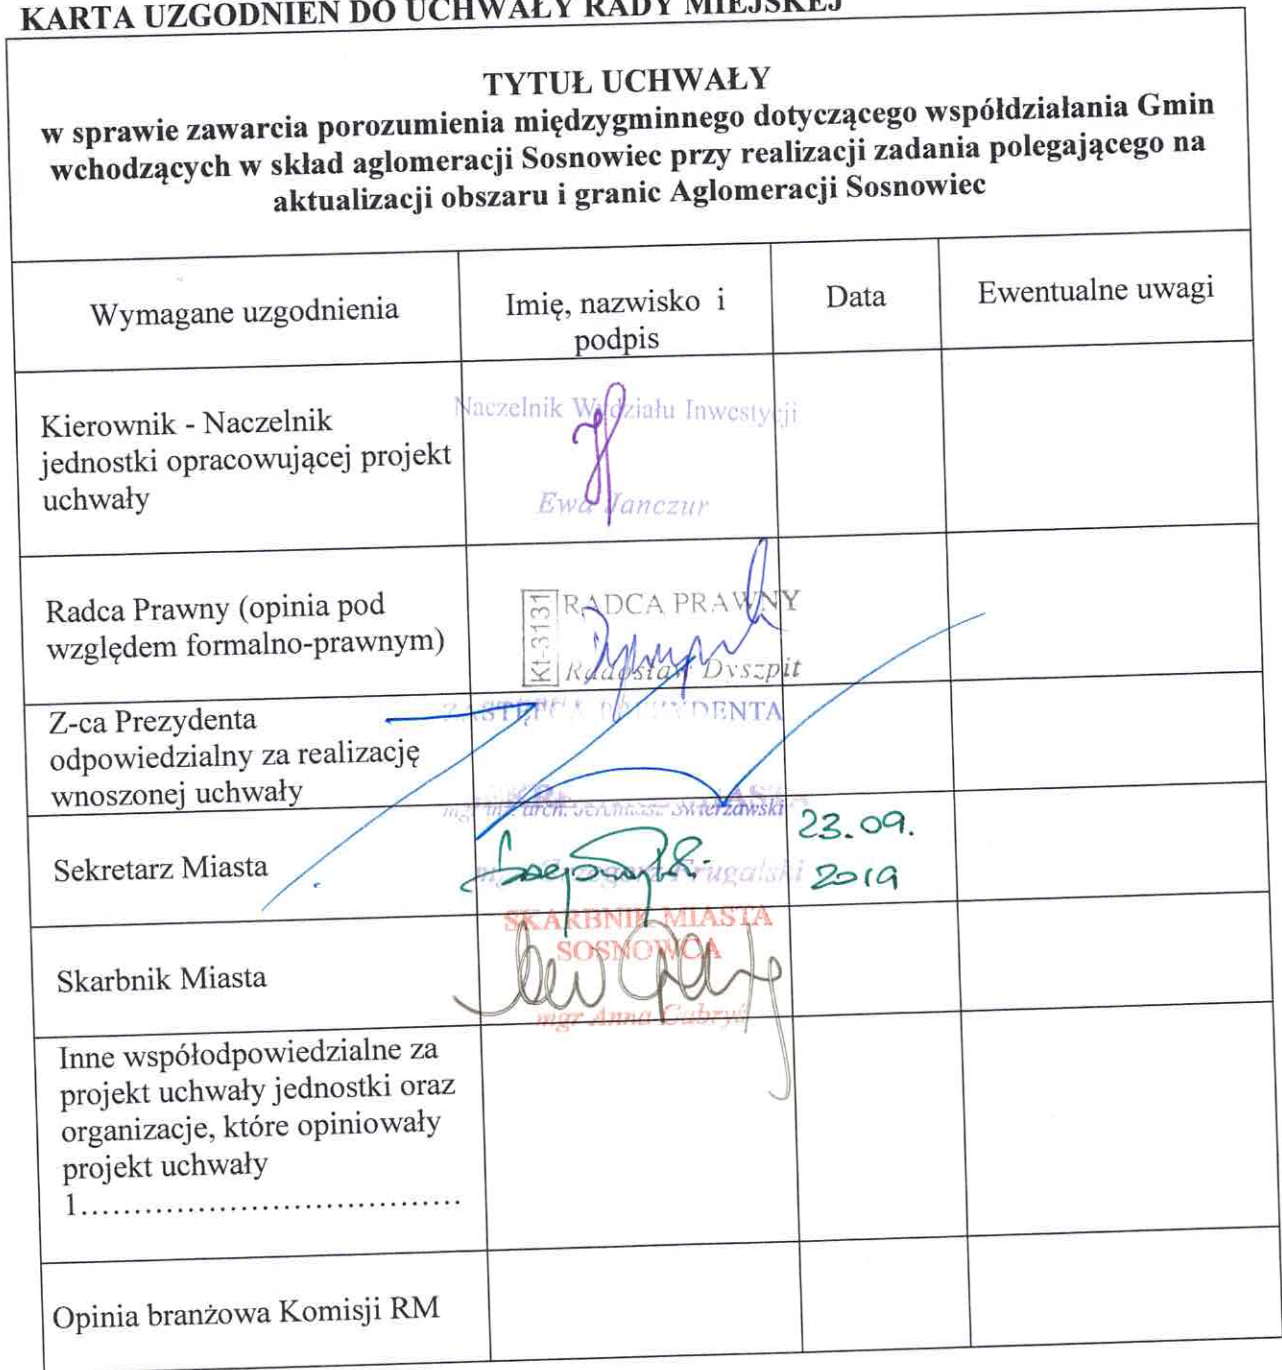 KARTA UZGODNIEŃ DO UCHWAŁY RADY MIEJSKEJ
TYTUŁ UCHWAŁY
w sprawie zawarcia porozumienia międzygminnego dotyczącego współdziałania Gmin
wchodzących w skład aglomeracji Sosnowiec przy realizacji zadania polegającego na
aktualizacji obszaru i granic Aglomeracji Sosnowiec
Wymagane uzgodnienia
Imię, nazwisko i
podpis
Data
Ewentualne uwagi
Kierownik - Naczelnik
jednostki opracowującej projekt
uchwały
Naczelnik Wydziału Inwestycji
Ewa Janczur
Radca Prawny (opinia pod
względem formalno-prawnym)
Kt-3131
RADCA PRAWNY
Radosław Dyszpit
Z-ca Prezydenta
odpowiedzialny za realizację
wnoszonej uchwały
ZASTĘPCA PREZYDENTA
mgr inż. arch.
Sekretarz Miasta
23.09.
2019
Skarbnik Miasta
SKARBNIK MIASTA
SOSNOWCA
mgr Anna Gabryś
Inne współodpowiedzialne za
projekt uchwały jednostki oraz
organizacje, które opiniowały
projekt uchwały
1.....................................
Opinia branżowa Komisji RM